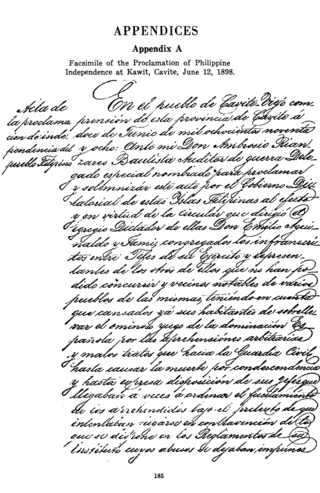 APPENDICES
Appendix A
Facsimile of the Proclamation of Philippine
Independence at Kawit, Cavite, June 12, 1898.
Acta de
la proclama
cion de inde
pendencia del
pueblo Filipino
En el pueblo de Cavite Viejo com
prension de esta provincia de Cavite á
doce de Junio de mil ochocientos noventa
y ocho: Ante mi Don Ambrosio Rian
zares Bautista Auditor de guerra Dele
gado especial nombrado para proclamar
y solemnizar este acto por el Gobierno Dic
tatorial de estas Islas Filipinas al efecto
y en virtud de la circular que dirigió el
Egregio Dictador de ellas Don Emilio Agui
naldo y Famy, congregados los infrascri
tos entre Jefes de su Ejercito y represen
tantes de los otros de ellos que no han po
dido concurrir y vecinos notables de varios
pueblos de las mismas teniendo en cuenta
que cansados ya sus habitantes de sobrelle
var el ominoso yugo de la dominacion Es
pañola por las aprehensiones arbitrarias
y malos tratos que hacia la Guardia Civil
hasta causar la muerte por condescendencia
y hasta expresa disposicion de sus jefes que
llegaban á veces á ordenar el fusilamiento
de los aprehendidos bajo el pretexto de que
intentaban en contravencion de lo
que se dispone en los Reglamentos de su
Instituto cuyos abusos se dejaban impunes
185